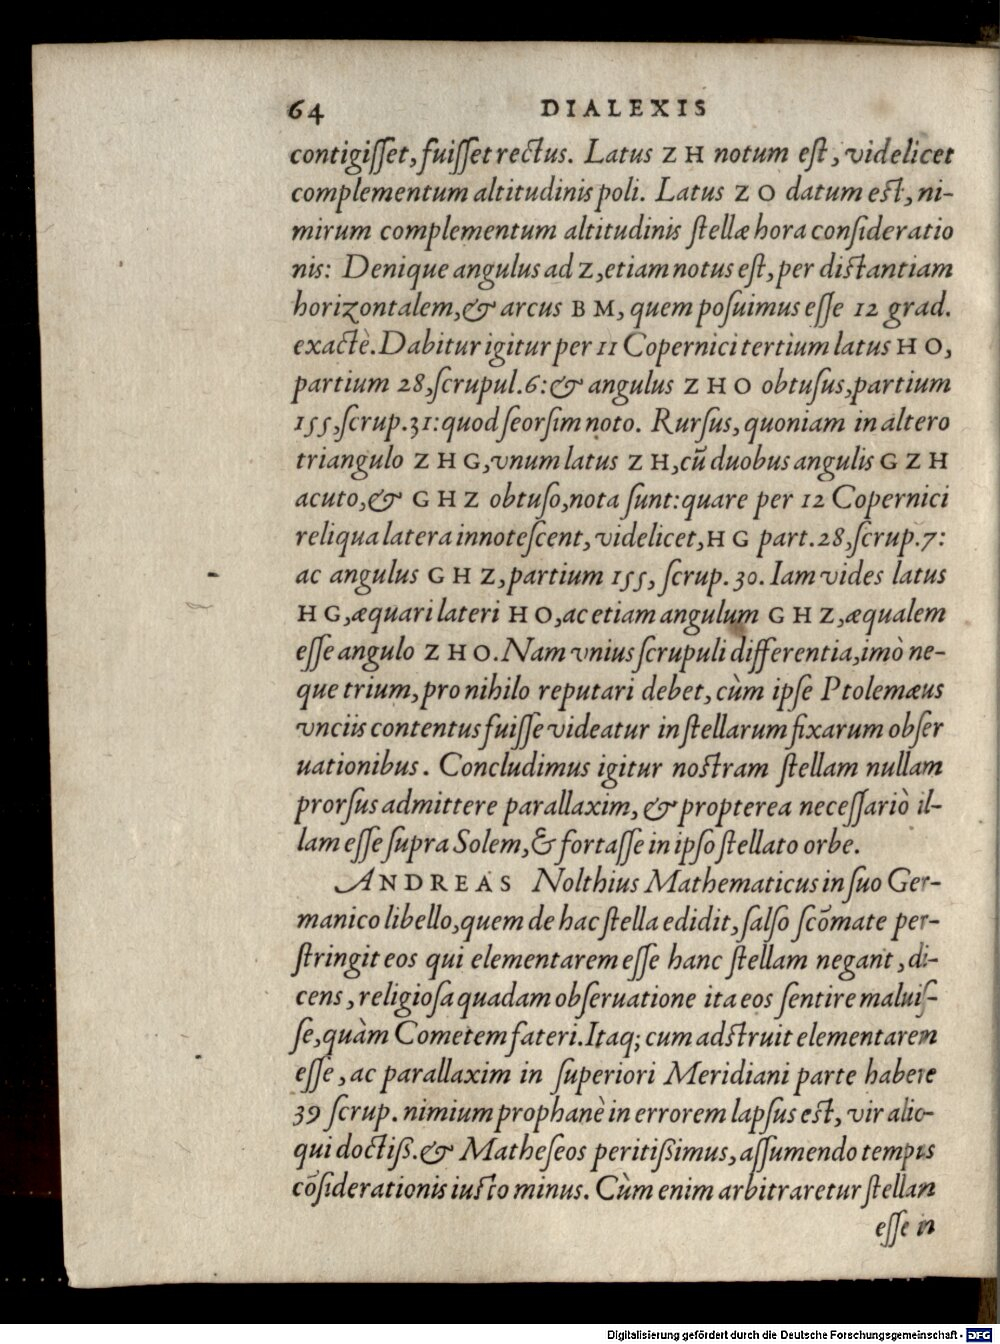 64 DIALEXIS
contigiſſet, fuiſſet rectus. Latus Z H notum eſt, videlicet
complementum altitudinis poli. Latus Z O datum eſt, ni-
mirum complementum altitudinis ſtellæ hora conſideratio
nis: Denique angulus ad Z, etiam notus eſt, per diſtantiam
horizontalem, & arcus B M, quem poſuimus eſſe 12 grad.
exactè. Dabitur igitur per 11 Copernici tertium latus H O,
partium 28, ſcrupul. 6: & angulus Z H O obtuſus, partium
155, ſcrup. 31: quod ſeorſim noto. Rurſus, quoniam in altero
triangulo Z H G, vnum latus Z H, cũ duobus angulis G Z H
acuto, & G H Z obtuſo, nota ſunt: quare per 12 Copernici
reliqua latera innoteſcent, videlicet, H G part. 28, ſcrup. 7:
ac angulus G H Z, partium 155, ſcrup. 30. Iam vides latus
H G, æquari lateri H O, ac etiam angulum G H Z, æqualem
eſſe angulo Z H O. Nam vnius ſcrupuli differentia, imò ne-
que trium, pro nihilo reputari debet, cùm ipſe Ptolemæus
vnciis contentus fuiſſe videatur in ſtellarum fixarum obſer
uationibus. Concludimus igitur noſtram ſtellam nullam
prorſus admittere parallaxim, & propterea neceſſariò il-
lam eſſe ſupra Solem, & fortaſſe in ipſo ſtellato orbe.
ANDREAS Nolthius Mathematicus in ſuo Ger-
manico libello, quem de hac ſtella edidit, ſalſo ſcõmate per-
ſtringit eos qui elementarem eſſe hanc ſtellam negant, di-
cens, religioſa quadam obſeruatione ita eos ſentire maluiſ-
ſe, quàm Cometem fateri. Itaq; cum adſtruit elementarem
eſſe, ac parallaxim in ſuperiori Meridiani parte habere
39 ſcrup. nimium prophanè in errorem lapſus eſt, vir alio-
qui doctiß. & Matheſeos peritißimus, aſſumendo tempus
cõſiderationis iuſto minus. Cùm enim arbitraretur ſtellam
eſſe in
Digitalisierung gefördert durch die Deutsche Forschungsgemeinschaft - DFG